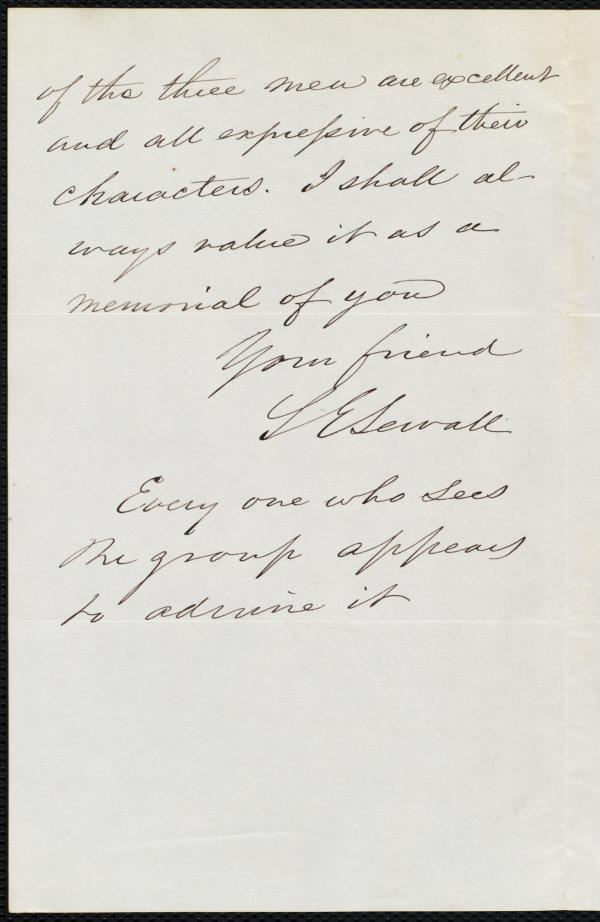 of the three men are excellent
and all expressive of their
characters. I shall al-
ways value it as a
memorial of you
Your friend
S E Sewall
Every one who sees
the group appears
to admire it